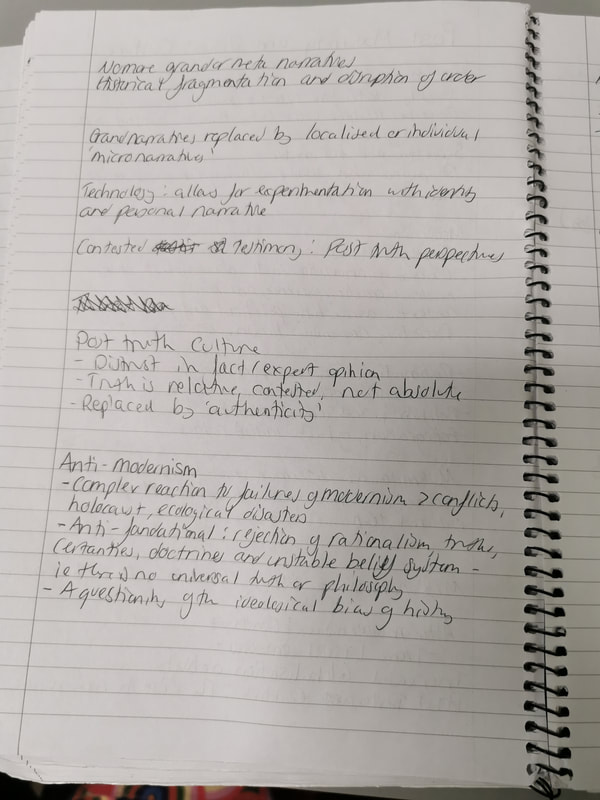 No more grand or meta narratives
Historical fragmentation and disruption of order
Grand narratives replaced by localised or individual
'micronarratives'
Technology: allows for experimentation with identity
and personal narrative
Contested Testimony: Post truth perspectives
Post truth culture
- Distrust in fact/expert opinion
- Truth is relative, contested, not absolute
- Replaced by 'authenticity'
Anti-modernism
- Complex reaction to failures of modernism > conflicts,
holocaust, ecological disasters
- Anti-foundational: rejection of rationalism, truths,
certanties, doctrines and unstable belief system -
ie there is no universal truth or philosophy
- A questioning of the ideological bias of history